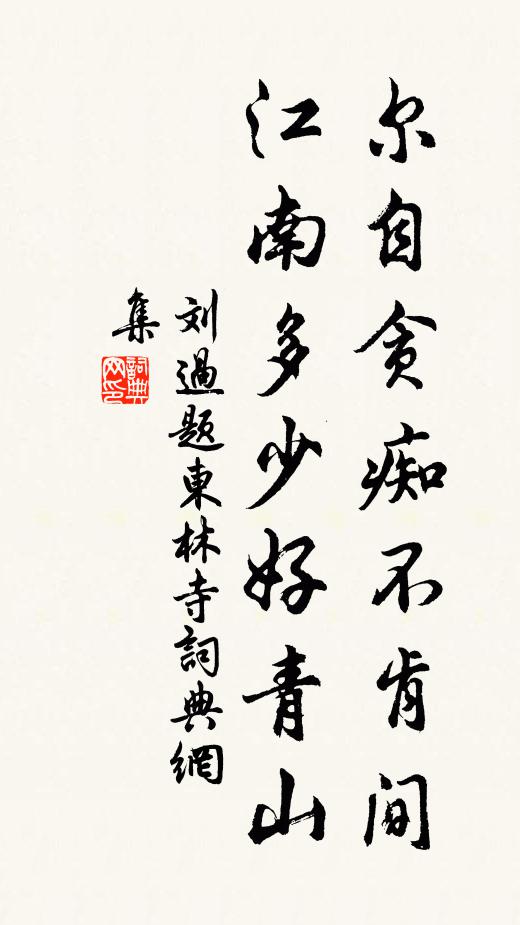 尔自贪痴不肯间
江南多少好青山
刘過题東林寺詞典網
集
詞典网印